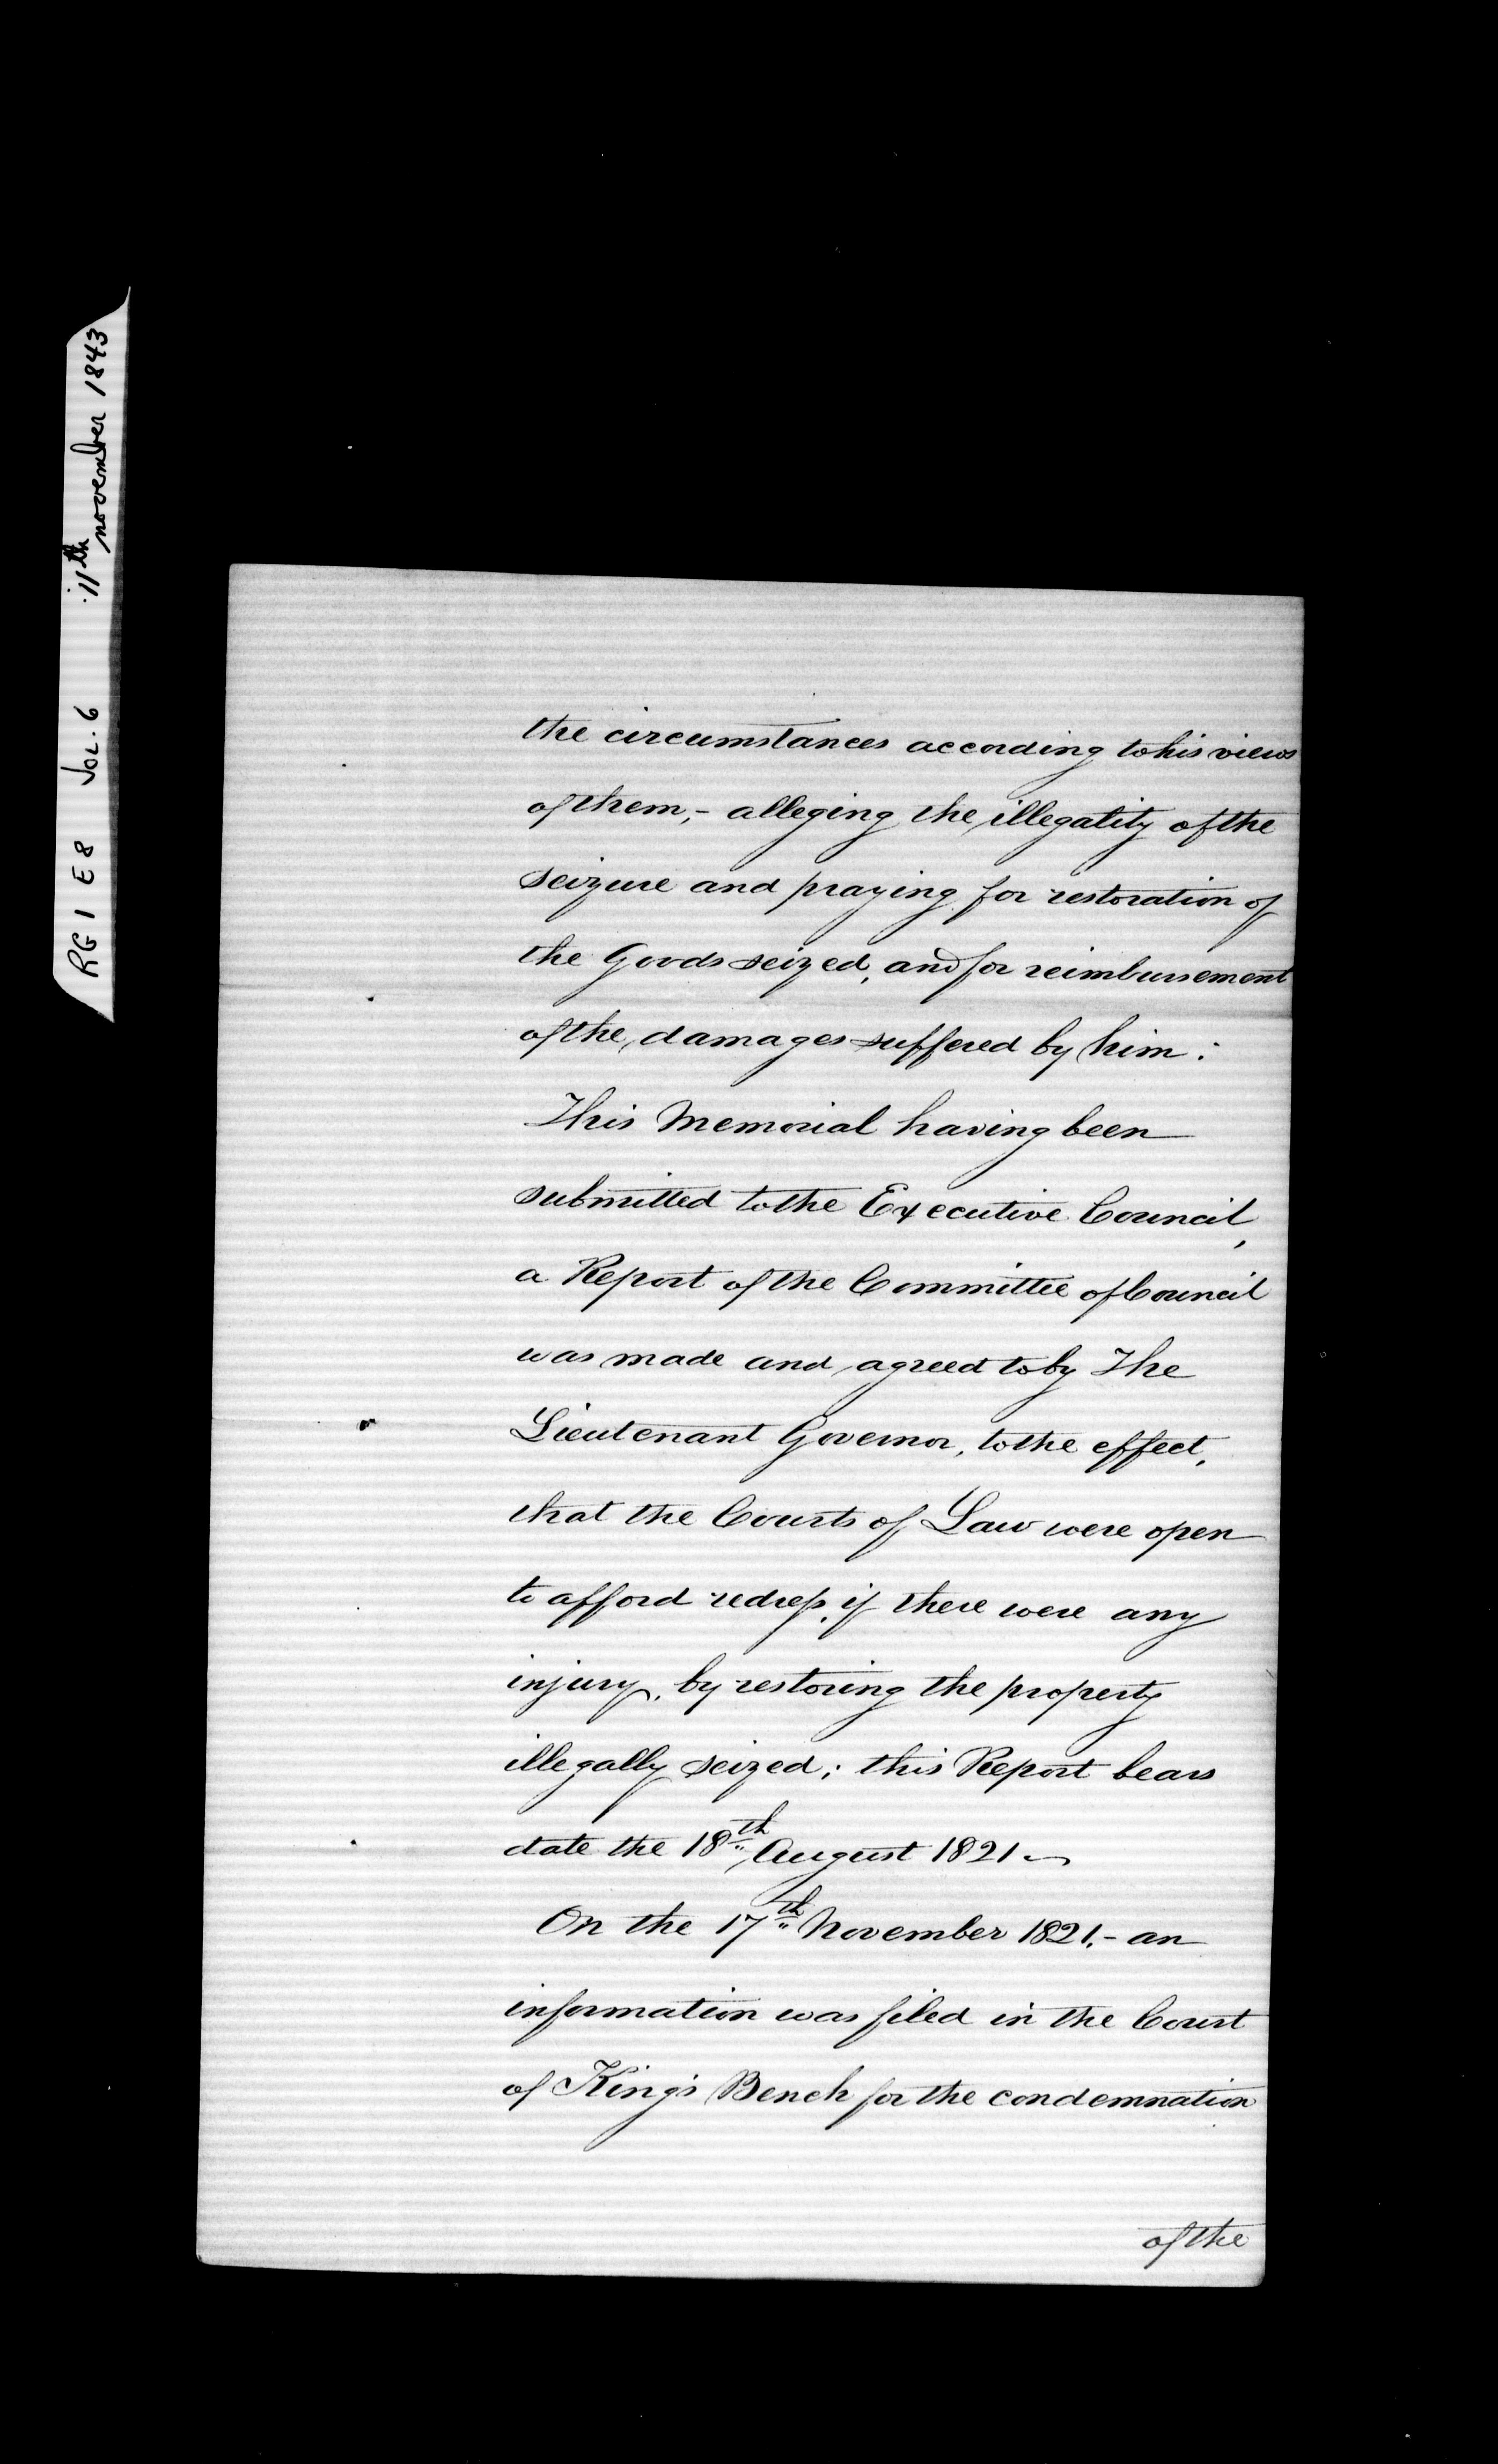 RG 1 E 8 Vol. 6 11th november 1843
the circumstances according to his views
of them,- alleging the illegality of the
seizure and praying for restoration of
the Goods seized, and for reimbursement
of the damages suffered by him:
This Memorial having been
submitted to the Executive Council,
a Report of the Committee of Council
was made and agreed to by The
Lieutenant Governor, to the effect,
that the Courts of Law were open
to afford redress, if there were any
injury, by restoring the property
illegally seized; this Report bears
date the 18th August 1821 —
On the 17th November 1821.- an
information was filed in the Court
of King's Bench for the condemnation
of the